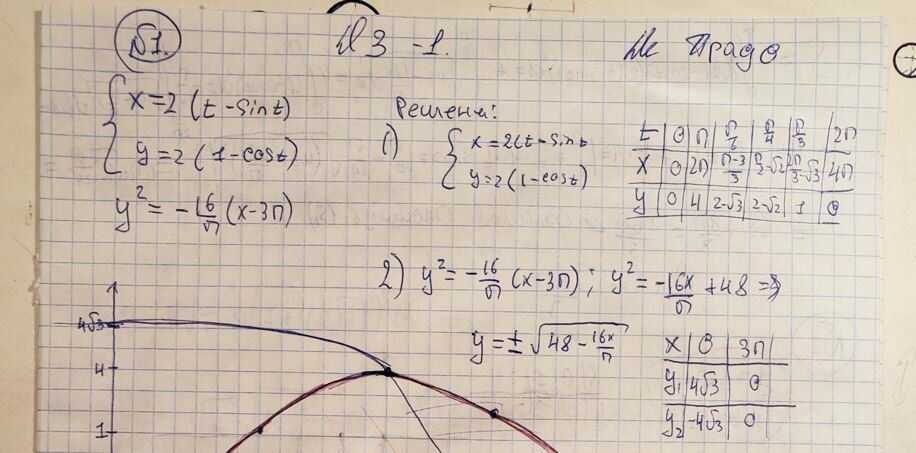 №1. ДЗ -1. Де Прадо
{ x=2(t-sint)
y=2(1-cost)
y² = -16/π (x-3π)
Решены:
1) { x=2(t-sint
y=2(1-cost)
t | 0 | π | π/6 | π/4 | π/3 | 2π
x | 0 | 2π | π-3/3 | π/2-√2 | 2π/3-√3 | 4π
y | 0 | 4 | 2-√3 | 2-√2 | 1 | 0
2) y² = -16/π (x-3π); y² = -16x/π +48 =>
y = ± √48 - 16x/π
x | 0 | 3π
y₁ | 4√3 | 0
y₂ | -4√3 | 0
4√3
4
1